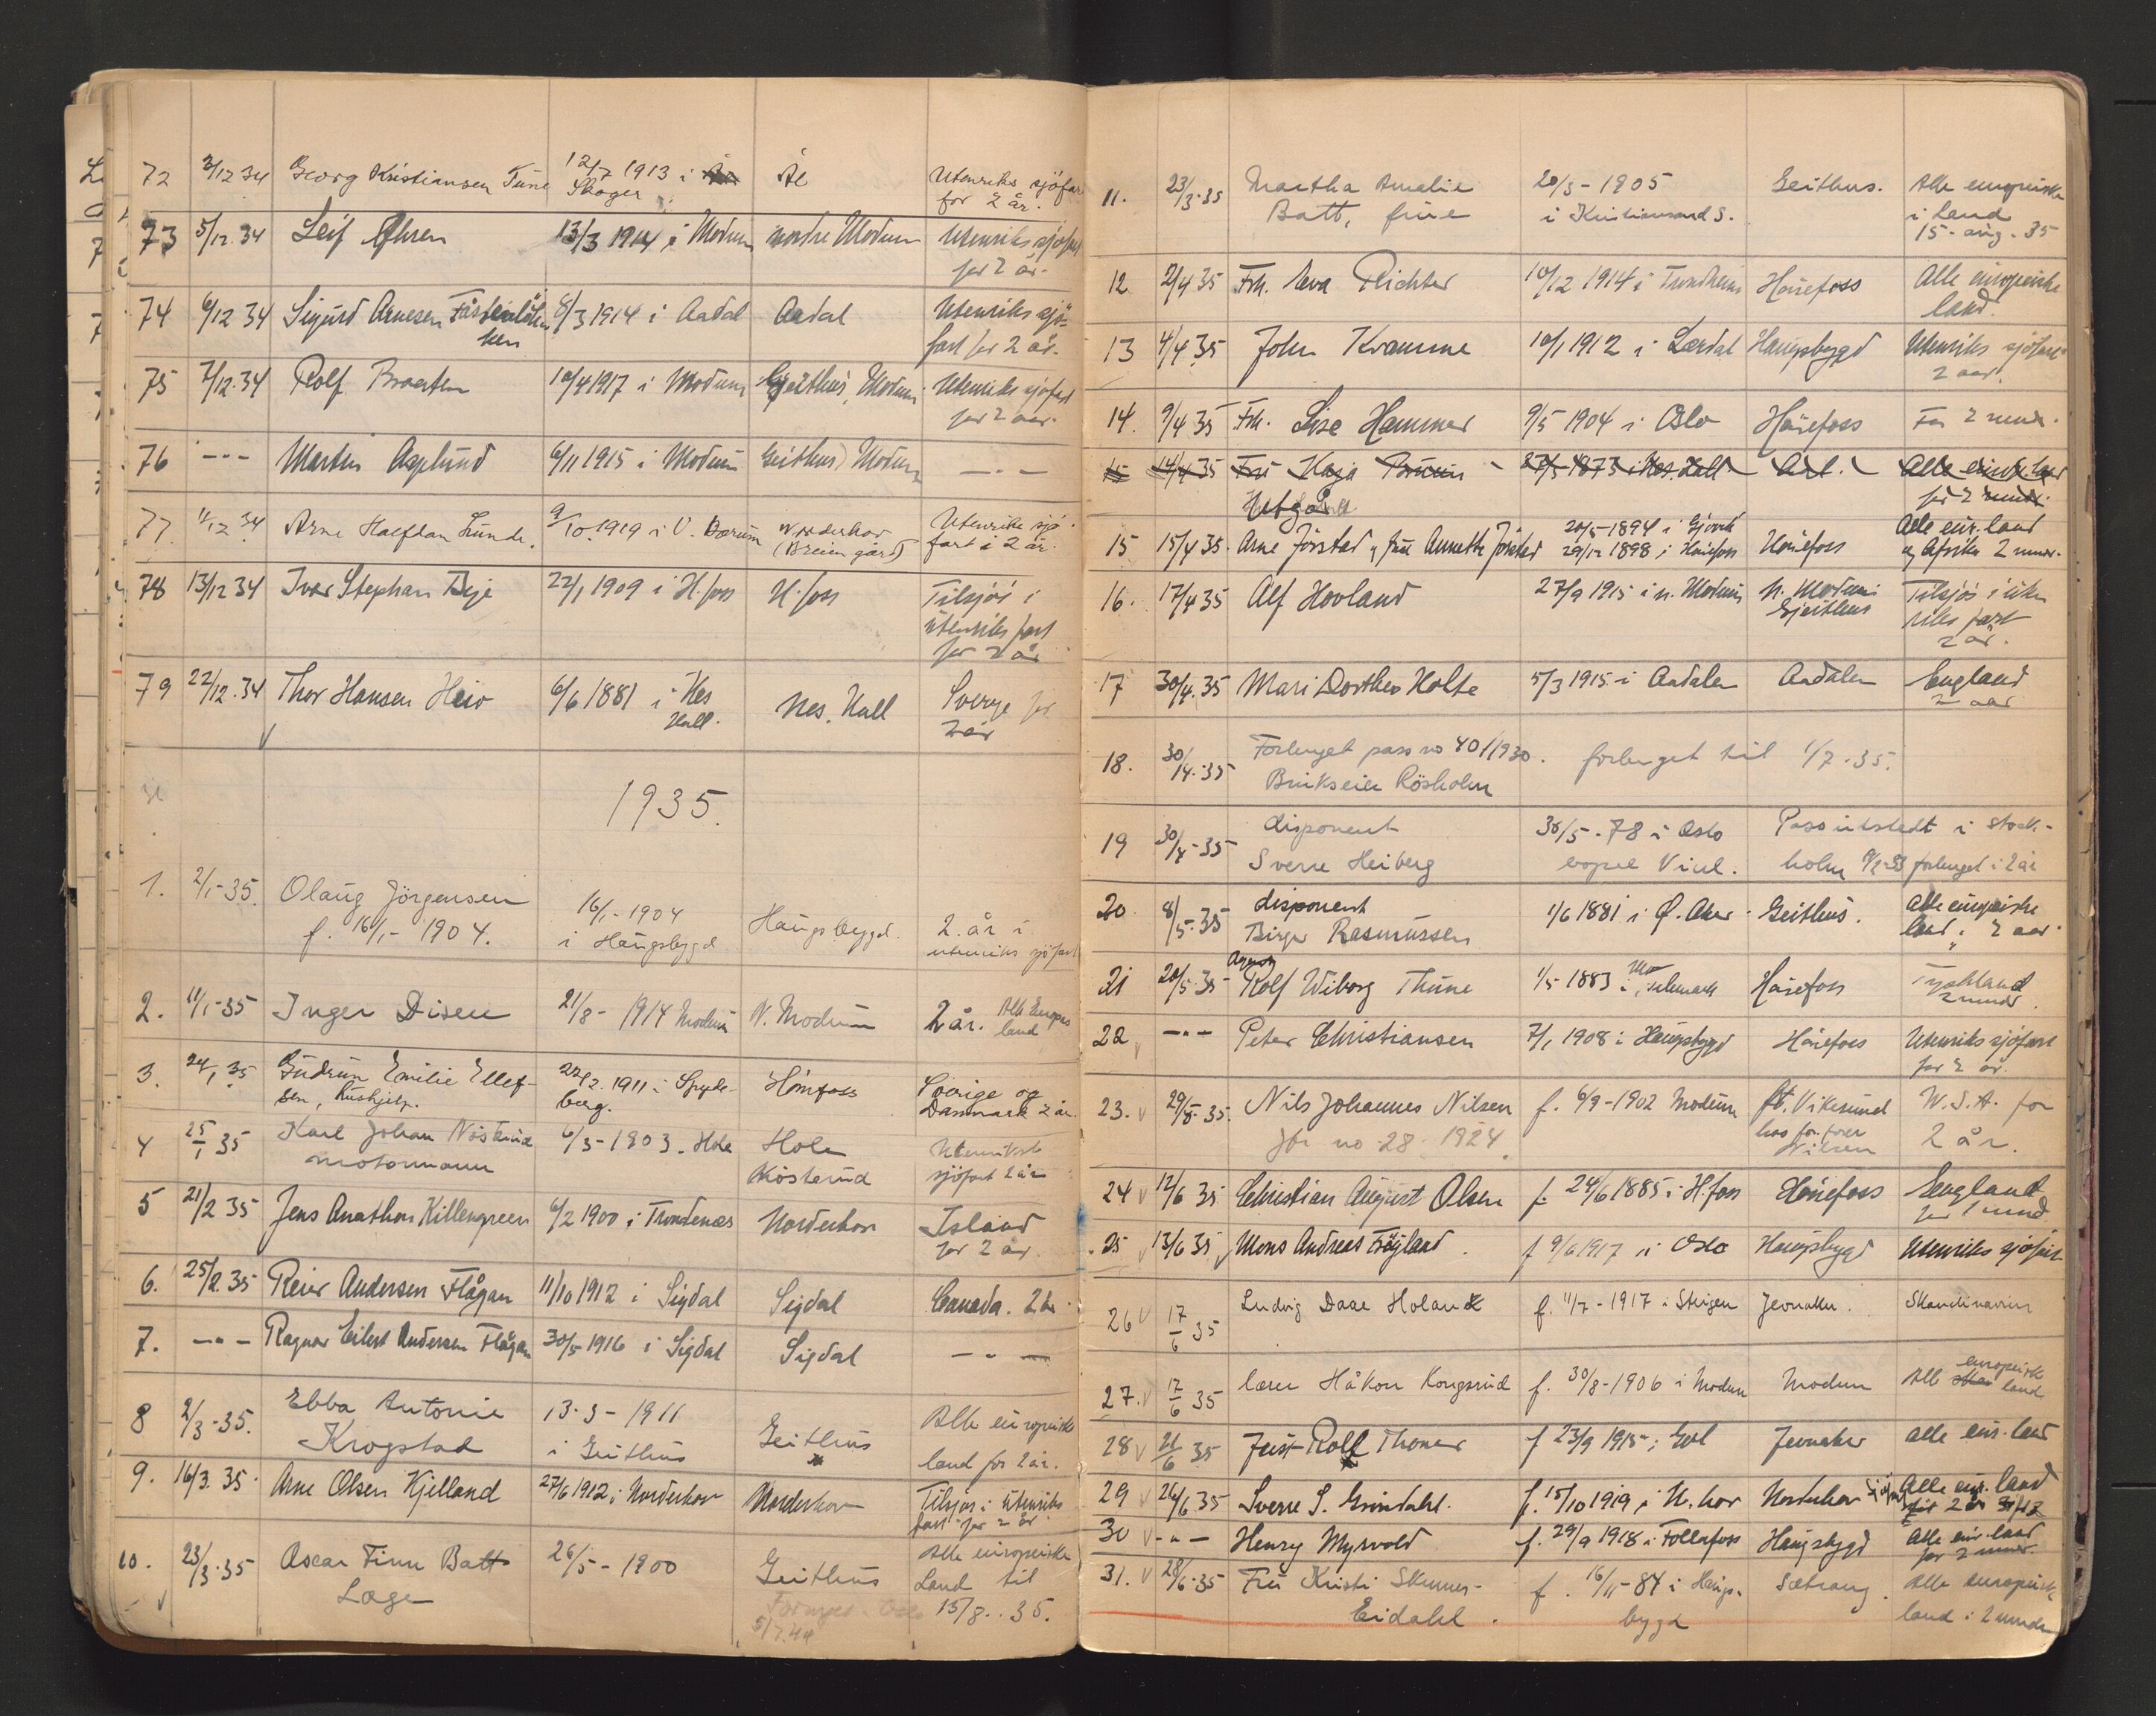 72 3/12 34 Georg Kristiansen Tune 12/7 1913 i Ål Utenriks sjöfart
Skoger for 2 år.
73 5/12.34 Leif Öhren 13/3 1914 i Modum nordre Modum Utenriks sjöfart
for 2 år.
74 6/12 34 Sigurd Arnesen 8/3 1914 i Aadal Aadal Utenriks sjö-
fart for 2 år.
75 7/12.34 Rolf Braaten 10/4 1917 i Modum Geithus, Modum Utenriks sjöfart
for 2 aar.
76 -"- Martin Asplund 6/11 1915 i Modum Geithus, Modum -"-
77. 11/12 34 Arne Halfdan Lunde. 9/10.1919 i V. Bærum Norderhov Utenriks sjö-
(Breien gård) fart i 2 år.
78 13/12 34 Iver Stephan Beje 22/1 1909 i H.foss H.foss Tilsjös i
utenriks fart
for 2 år
79 22/12.34 Thor Hansen Heio 6/6 1881 i Nes Nes. Hall Sverge for
Hall. 2 år
1935.
1. 2/1-35. Olaug Jörgensen 16/1-1904 Haugsbygd. 2. år i
f. 16/1-1904. i Haugsbygd utenriks sjöfart
2. 11/1-35 Inger Disen 21/8-1914 Modum N. Modum 2 år. Alle Europas
land
3. 24/1 35 Gudrun Emilie Ellef- 22/2.1911 i Spyde- Hönefoss Sverige og
sen, Hushjelp. berg. Danmark 2 år.
4 25/1 35 Karl Johan Nösterud 6/3-1903. Hole Hole Utenriks
motormann Nösterud sjöfart 2 år
5 21/2 35 Jens Anathon Killengreen 6/2 1900 i Trondenæs Norderhov Island
for 2 år.
6. 25/2.35 Reier Andersen Flågan 11/10 1912 i Sigdal Sigdal Canada. 2 år.
7. -"- Ragnar Eilert Andersen Flågan 30/5 1916 i Sigdal Sigdal -"-
8 2/3-35. Ebba Antonie 13-3-1911 Geithus Alle europeiske
Krogstad i Geithus land for 2 år.
9. 16/3.35. Arne Olsen Kjelland 27/6 1912 i Norderhov Norderhov Tilsjös i utenriks
fart for 2 år
10. 23/3.35 Oscar Finn Batt 26/5-1900 Geithus Alle europeiske
Læge Land til
15/8..35.
11. 23/3.35 Martha Amalie 20/3-1905 Geithus. Alle europeiske
Batt, frue i Kristiansand S. i Land
15. aug. 35
12 2/4 35 Frk. Eva Richter 10/12 1914 i Trondheim Hönefoss Alle europeiske
land.
13 4/4 35 John Kramme 10/1 1912 i Lærdal Haugsbygd Utenriks sjöfart
2 aar.
14. 9/4 35 Frk. Lise Hammer 9/5 1904 i Oslo Hönefoss For 2 mndr.
15 14/4 35 Fru Kaja Bruun 27/5-1873 i Nes. Hall Aal. Alle eur. land
Utgår. for 2 mndr.
15 15/4 35. Arne Jörstad og frue Annette Jörstad 20/5-1894 i Gjövik Hönefoss Alle eur. land
29/12 1898 i Hönefoss og Afrika 2 mndr.
16. 17/4 35 Alf Hovland 27/9 1915 i n. Modum N. Modum Tilsjös i uten
Gjeithus riks fart
2 år.
17 30/4.35 Mari Dorthea Holte 5/3 1915 i Aadalen Aadalen England
2 aar
18. 30/4.35 Forlenget pass no 401/1930. forlenget til 1/7.35.
Brukseier Rösholm
19 30/4-35 disponent 30/5-78 i Oslo Pass utstedt i Stock-
Sverre Heiberg holm forlenget i 2 år
20. 8/5-35 disponent 1/6 1881 i Ø. Aker. Geithus. Alle europeiske
Birger Rasmussen land. 2 aar.
21 20/5 35 August Rolf Wiborg Thune 1/5-1883 i Mo, Telemark Hönefoss Tyskland
2 mndr.
22 -"- Peter Christiansen 7/1 1908 i Haugsbygd Hönefoss Utenriks sjöfart
for 2 år.
23. 29/5-35. Nils Johannes Nilsen f. 6/9-1902 Modum pt. Vikesund U.S.A. for
Jfr no 28. 1924. hos forfrer Nilsen 2 år.
24 12/6 35 Christian August Olsen f. 24/6 1885 i H.foss Hönefoss England
for 1 mnd
25 13/6 35 Mons Andreas Fröyland. f 9/6 1917 i Oslo Haugsbygd Utenriks sjöfart
26 17/6 35 Ludvig Daae Holand f. 11/7-1917 i Steigen Jevnaker. Skandinavien
27. 17/6 35 lærer Håkon Kongsrud f. 30/8-1906 i Modum Modum Alle europeisk
land
28 21/6 35 Just Rolf Thomer f 23/9 1915 i Gol Jevnaker alle eur. land
29 26/6 35 Sverre S. Grindahl. f. 15/10 1919 i N.hov Norderhov Alle eur. land
30 -"- Henry Myrvold f. 29/9 1918 i Follafoss Haugsbygd Alle eur. land
for 2 mndr.
31. 28/6-35 Fru Kristi Skinnes- f. 16/11-84 i Haugs- Sætrang. Alle europeisk
Eidahl. bygd land i 2 mndr